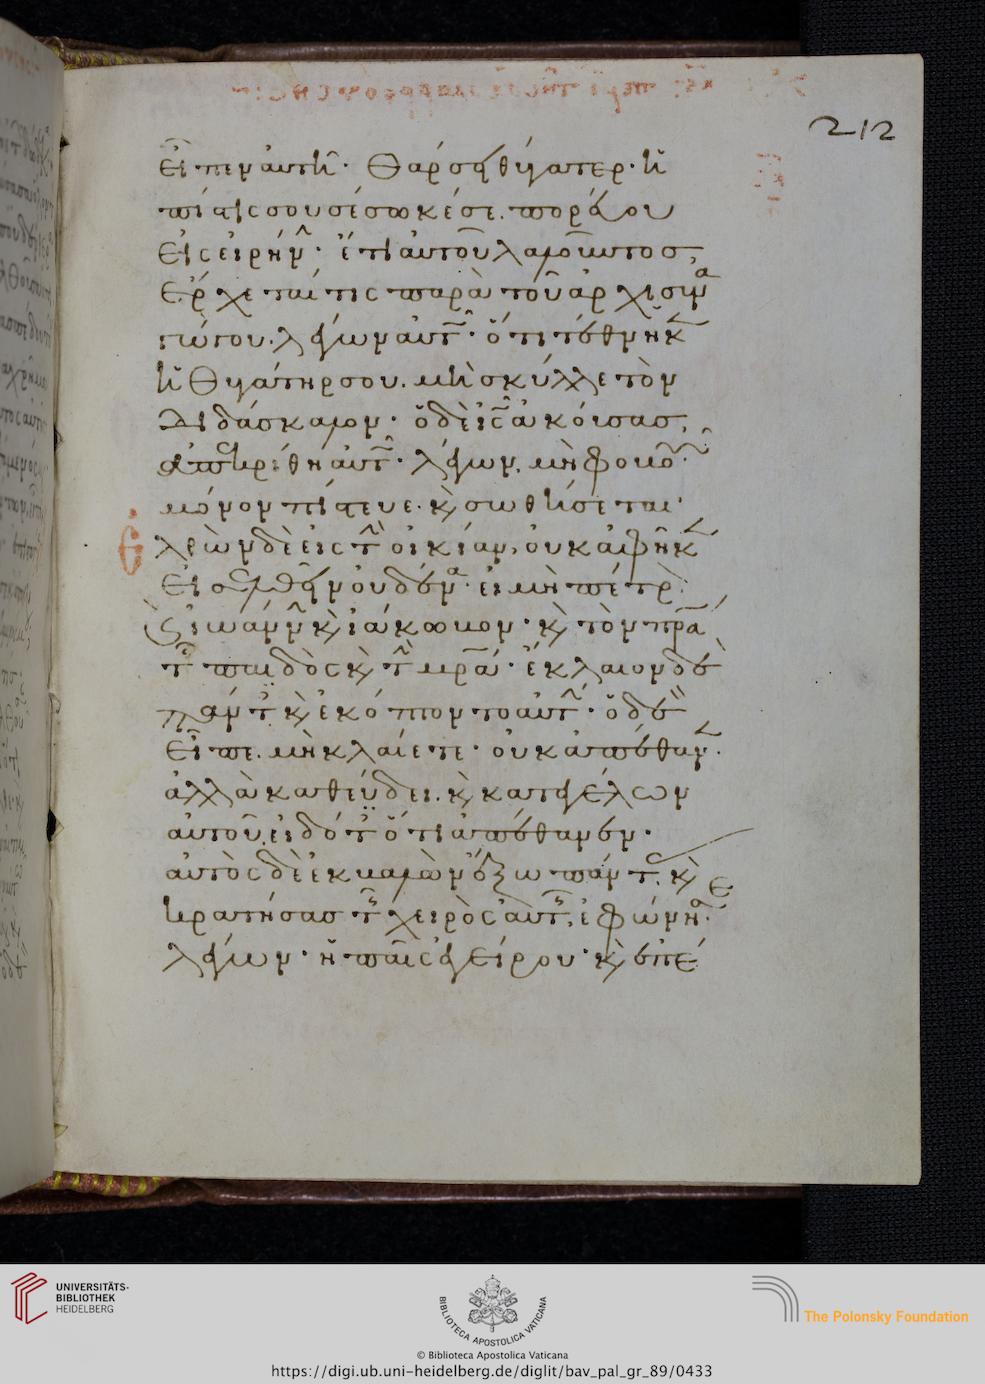 212
εἶπεν αὐτῆ· θάρσει θύγατερ· ἡ
πίστις σου σέσωκέ σε. πορεύου
εἰς εἰρήνην· ἔτι αὐτοῦ λαλοῦντος,
ἔρχεταί τις παρὰ τοῦ ἀρχισυνα
γώγου. λέγων αὐτῶ· ὅτι τέθνηκεν
ἡ θυγάτηρ σου. μὴ σκύλλε τὸν
διδάσκαλον· ὁ δὲ ἰς ἀκούσας,
ἀπεκρίθη αὐτῶ· λέγων, μὴ φοβοῦ·
μόνον πίστευε· κ σωθήσεται·
ἐλθὼν δὲ εἰς τὴν οἰκίαν, οὐκ ἀφῆκεν
εἰσελθεῖν οὐδένα· εἰ μὴ πέτρον
κ ἰωάννην κ ἰάκωβον· κ τὸν πρα
τῆς παιδὸς κ τὴν μρα· ἔκλαιον δὲ
πάντες κ ἐκόπτοντο αὐτήν· ὁ δὲ
εἶπε. μὴ κλαίετε· οὐκ ἀπέθανεν·
ἀλλὰ καθεύδει. κ κατεγέλων
αὐτοῦ, εἰδότες ὅτι ἀπέθανεν·
αὐτὸς δὲ ἐκβαλὼν ἔξω πάντας κ
κρατήσας τῆς χειρὸς αὐτῆς, ἐφώνησε
λέγων· ἡ παῖς ἐγείρου· κ ἐπέ
UNIVERSITÄTS-
BIBLIOTHEK
HEIDELBERG
BIBLIOTECA APOSTOLICA VATICANA
The Polonsky Foundation
© Biblioteca Apostolica Vaticana
https://digi.ub.uni-heidelberg.de/diglit/bav_pal_gr_89/0433